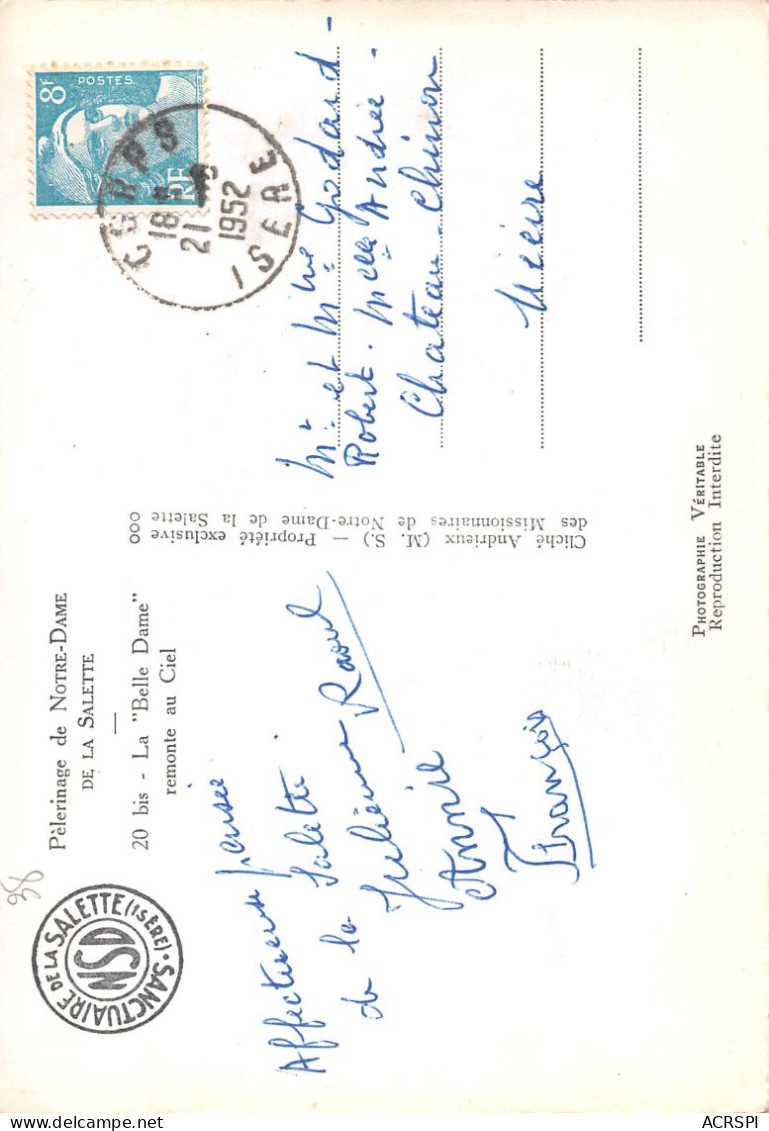 Pèlerinage de NOTRE-DAME
DE LA SALETTE
20 bis - La "Belle Dame"
remonte au Ciel
SANCTUAIRE DE LA SALETTE (ISÈRE)
NSD
38
Affectueuse pensée
de la Salette
Julienne Raoul
Annie
François
Cliché Andrieux (M. S.) — Propriété exclusive
des Missionnaires de Notre-Dame de la Salette
000
8F
POSTES
RF
CORPS
18
21
1952
ISERE
Mr et Mme Godard -
Robert. Melle Andrée -
Chateau-Chinon
Nièvre
PHOTOGRAPHIE VÉRITABLE
Reproduction Interdite
ACRSPI